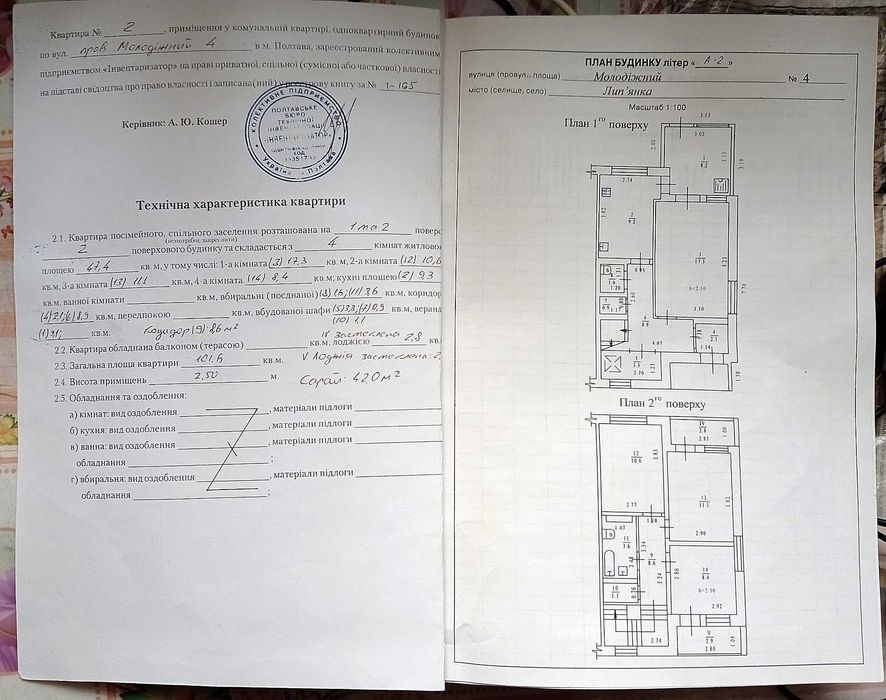 Квартира № 2, приміщення у комунальній квартирі, одноквартирний будинок
по вул. пров. Молодіжний 4 в м. Полтава, зареєстрований колективним
підприємством «Інвентаризатор» на праві приватної, спільної (сумісної або часткової) власності
на підставі свідоцтва про право власності і записана(ний) у реєстрову книгу за № 1-165
Керівник: А. Ю. Кошер
КОЛЕКТИВНЕ ПІДПРИЄМСТВО
ПОЛТАВСЬКЕ
БЮРО
ТЕХНІЧНОЇ
ІНВЕНТАРИЗАЦІЇ
"ІНВЕНТАРИЗАТОР"
ІДЕНТИФІКАЦІЙНИЙ
КОД
Україна м. Полтава
Технічна характеристика квартири
2.1. Квартира посімейного, спільного заселення розташована на 1 та 2 поверсі
(непотрібне закреслити)
2 поверхового будинку та складається з 4 кімнат житловою
площею 47,4 кв. м, у тому числі: 1-а кімната (3) 17,3 кв. м, 2-а кімната (12) 10,6
кв.м, 3-а кімната (13) 11,1 кв.м, 4-а кімната (14) 8,4 кв.м; кухні площею (2) 9,3
кв.м, ванної кімнати кв.м, вбиральні (поєднаної) кв.м, коридор
кв.м, передпокою кв.м, вбудованої шафи кв.м, веранд
(10) 1,1
кв.м. Коридор (9): 8,6 м²
IV засклена
2.2. Квартира обладнана балконом (терасою) кв.м, лоджією 2,8 кв.
2.3. Загальна площа квартири 101,6 кв.м. V Лоджія засклена: 2,
2.4. Висота приміщень 2,50 м. Сарай: 42,0 м²
2.5. Обладнання та оздоблення:
а) кімнат: вид оздоблення , матеріали підлоги
б) кухня: вид оздоблення , матеріали підлоги
в) ванна: вид оздоблення , матеріали підлоги
обладнання ;
г) вбиральня: вид оздоблення , матеріали підлоги
обладнання ;
ПЛАН БУДИНКУ літер « А-2 »
вулиця (провул., площа) Молодіжний № 4
місто (селище, село) Лип'янка
Масштаб 1:100
План 1го поверху
3.13
3.02
2.00
1
8.2
3.19
2.74
3.92
2
9.2
3
17.3
5.23
h=2.50
3.30
7.70
0.95
8
1.6
1.20
7
0.9
1.17
2.60
6
8.9
4.07
4
2.1
1.54
5
3.3
2.70
1.23
1.30
План 2го поверху
IV
2.8
2.83
1.00
12
10.6
3.83
2.77
13
11.1
3.82
2.90
1.47
11
3.6
2.48
3.54
9
8.6
5.24
2.86
14
8.4
h=2.50
2.92
10
1.1
0.76
2.74
V
2.9
2.80
1.05